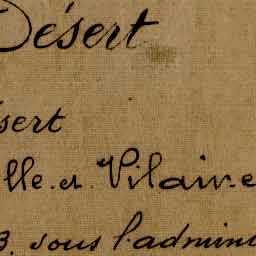 Désert
sert
lle. et. Vilaine
3. sous l'admini